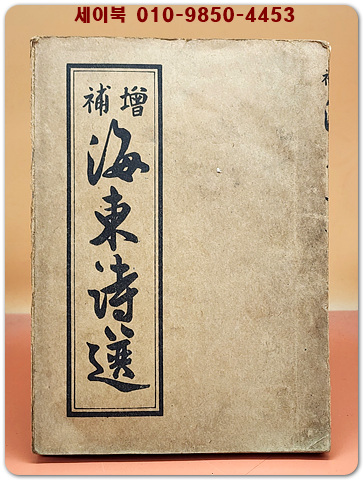 세이북 010-9850-4453
增補
海東詩選